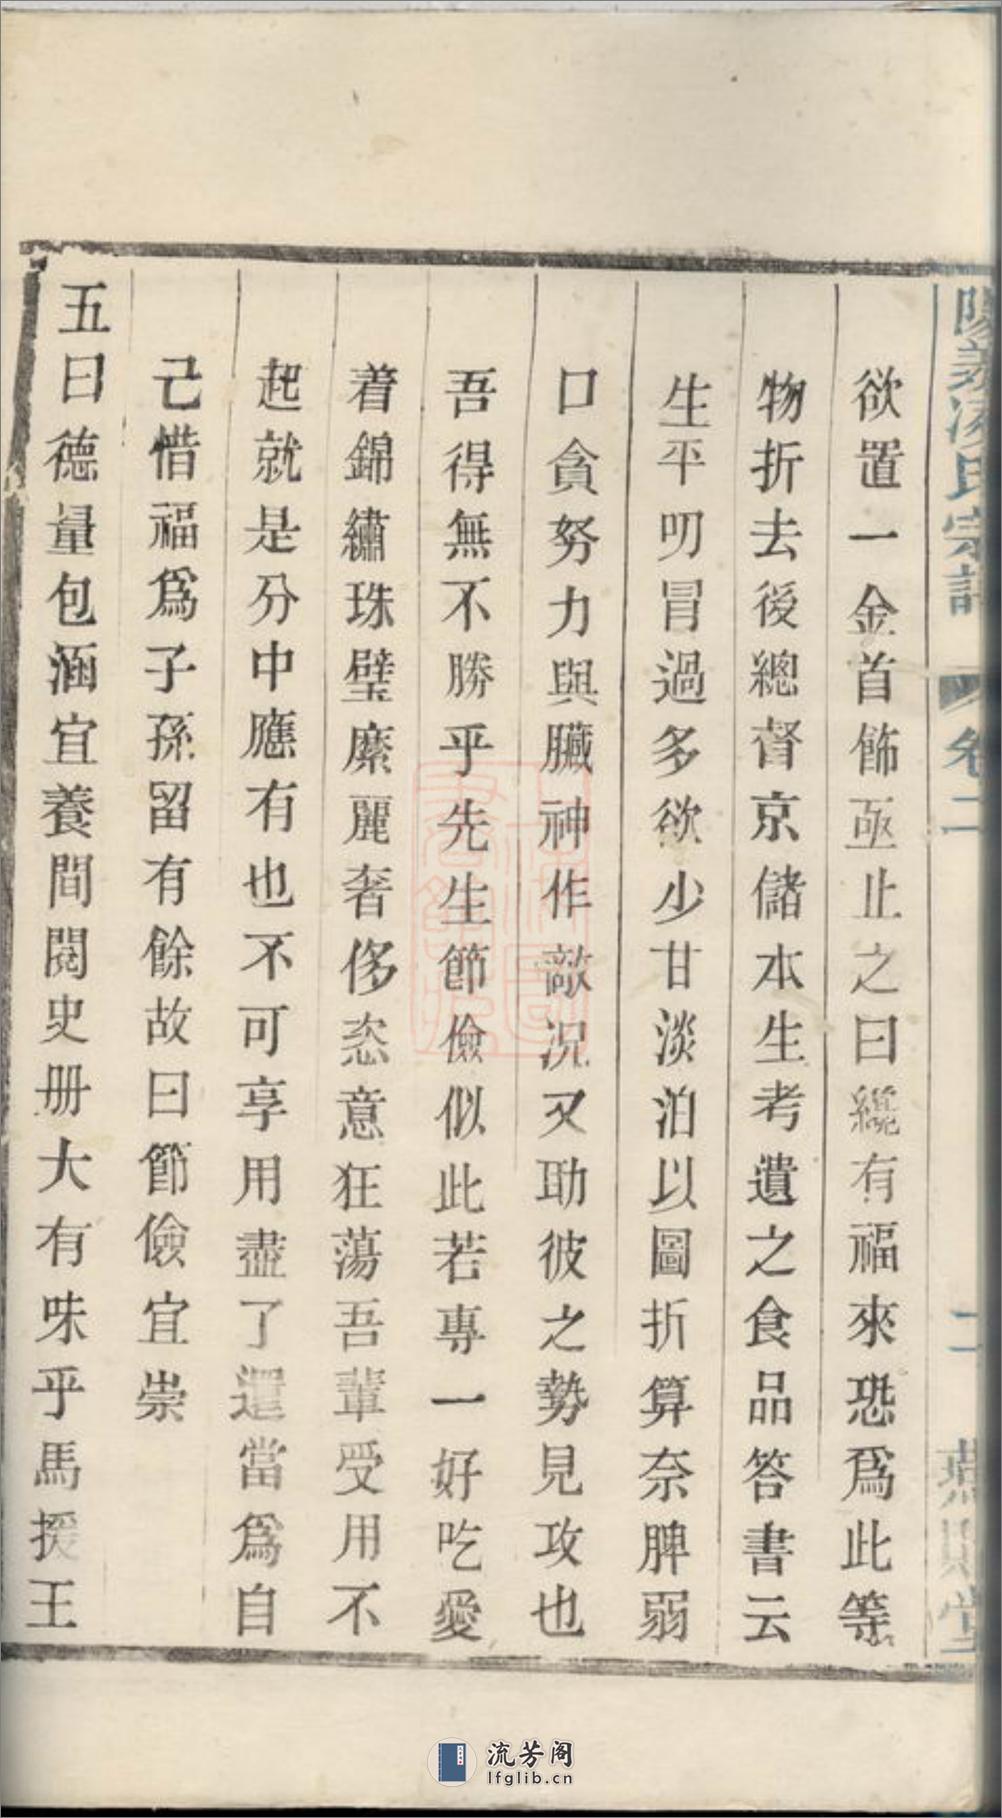 欲置一金首飾亟止之曰纔有福來恐爲此等
物折去後總督京儲本生考遺之食品答書云
生平叨冒過多欲少甘淡泊以圖折算奈脾弱
口貪努力與臟神作敵况又助彼之勢見攻也
吾得無不勝乎先生節儉似此若專一好吃愛
着錦繡珠璧縻麗奢侈恣意狂蕩吾輩受用不
起就是分中應有也不可享用盡了還當爲自
己惜福爲子孫留有餘故曰節儉宜崇
五曰德量包涵宜養間閱史册大有味乎馬援王
卷二
二
流芳阁
lfglib.cn